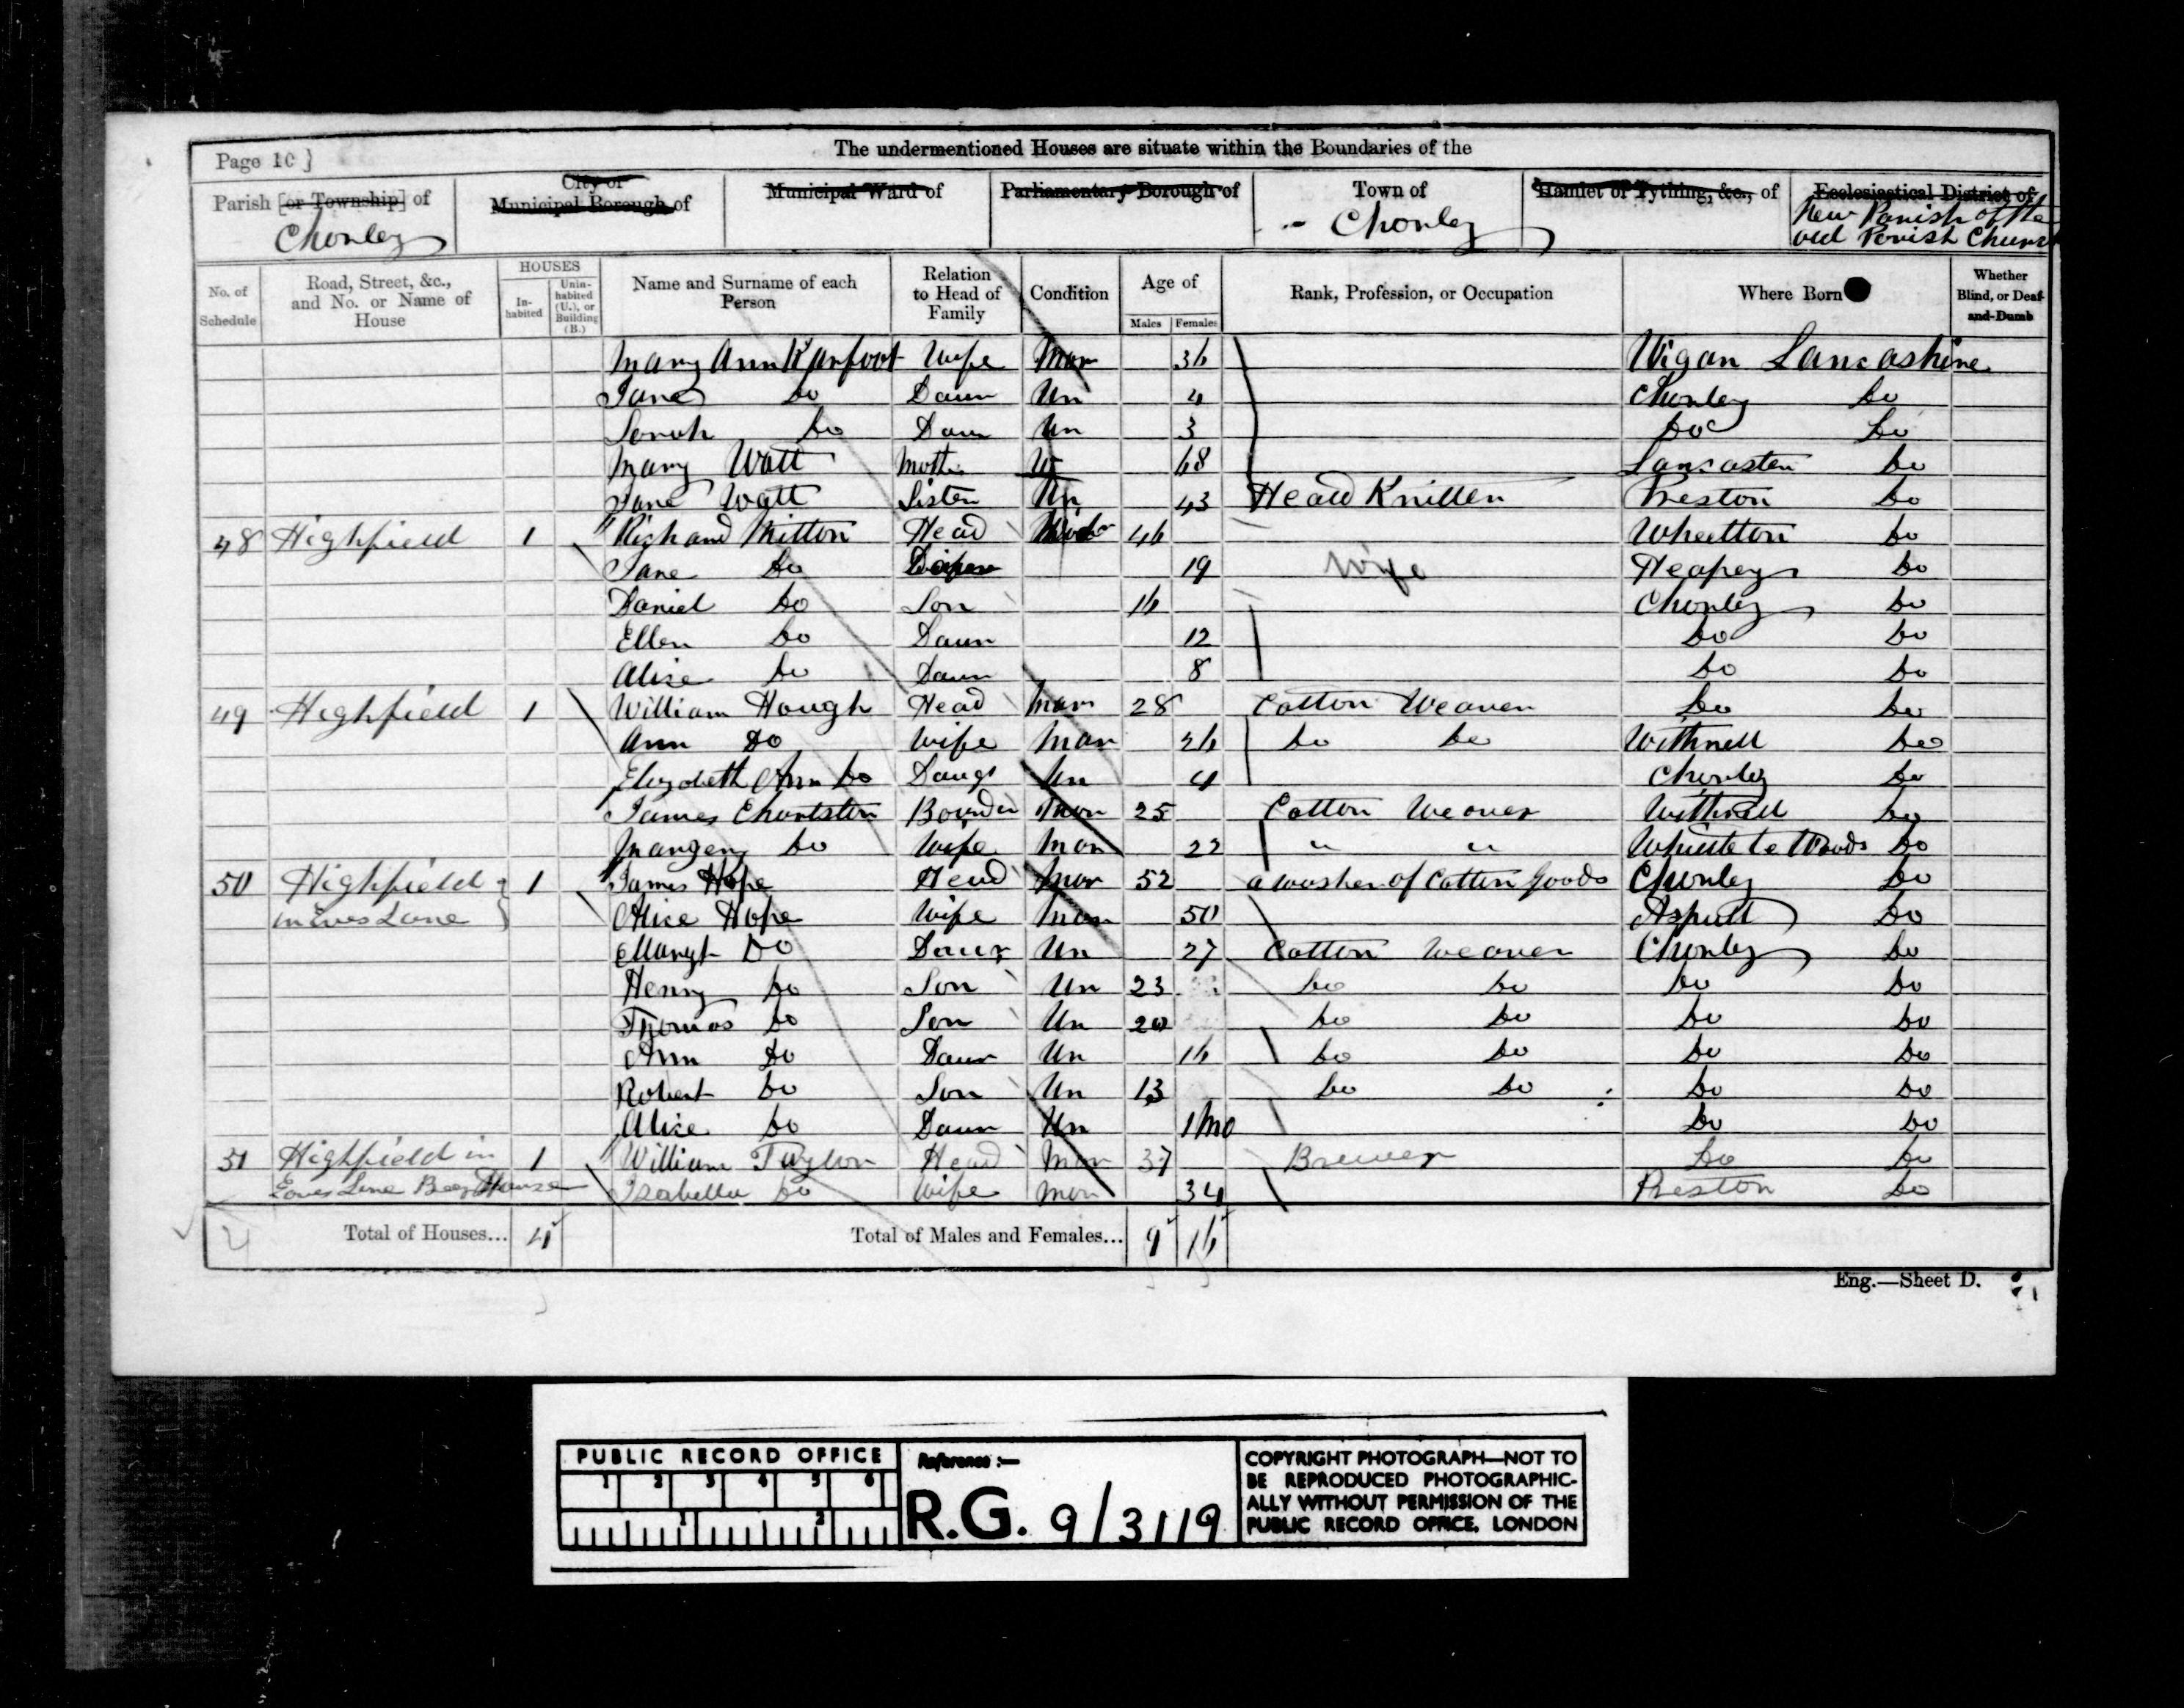 Page 10 }
The undermentioned Houses are situate within the Boundaries of the
Parish [or Township] of Chorley
City or Municipal Borough of
Municipal Ward of
Parliamentary Borough of
Town of Chorley
Hamlet or Tything, &c., of
Ecclesiastical District of New Parish of the old Parish Church
No. of Schedule
Road, Street, &c., and No. or Name of House
HOUSES
Inhabited
Uninhabited (U.), or Building (B.)
Name and Surname of each Person
Relation to Head of Family
Condition
Age of
Males Females
Rank, Profession, or Occupation
Where Born
Whether Blind, or Deaf-and-Dumb
Mary Ann Karfoot Wife Mar 36 Wigan Lancashire
Jane Do Daur Un 4 Chorley Do
Sarah Do Daur Un 3 Do Do
Mary Watt Moth W 68 Lancaster Do
Jane Watt Sister Un 43 Heald Knitter Preston Do
48 Highfield 1 Richard Mitton Head 46 Wheelton Do
Jane Do 19 Wife Heapey Do
Daniel Do Son 16 Chorley Do
Ellen Do Daur 12 Do Do
Alice Do Daur 8 Do Do
49 Highfield 1 William Hough Head Mar 28 Cotton Weaver Do Do
Ann Do Wife Mar 26 Do Do Withnell Do
Elizabeth Ann Do Daugr Un 4 Chorley Do
James Boarder Mar 25 Cotton Weaver Withnell Do
Do Wife Mar 22 " " Whittle le Woods Do
50 Highfield 1 James Hope Head Mar 52 a washer of Cotton Goods Chorley Do
in Eves Lane Alice Hope Wife Mar 50 Aspull Do
Margt Do Daur Un 27 Cotton Weaver Chorley Do
Henry Do Son Un 23 Do Do Do Do
Thomas Do Son Un 20 Do Do Do Do
Ann Do Daur Un 16 Do Do Do Do
Robert Do Son Un 13 Do Do Do Do
Alice Do Daur Un 1 Mo Do Do
51 Highfield in 1 William Taylor Head Mar 37 Brewer Do Do
Eaves Lane Beer House Isabella Do Wife Mar 34 Preston Do
4 Total of Houses... 4 Total of Males and Females... 9 16
Eng.—Sheet D.
PUBLIC RECORD OFFICE
1 2 3 4 5 6
1 2
Reference :—
R.G. 9/3119
COPYRIGHT PHOTOGRAPH—NOT TO
BE REPRODUCED PHOTOGRAPHIC-
ALLY WITHOUT PERMISSION OF THE
PUBLIC RECORD OFFICE, LONDON